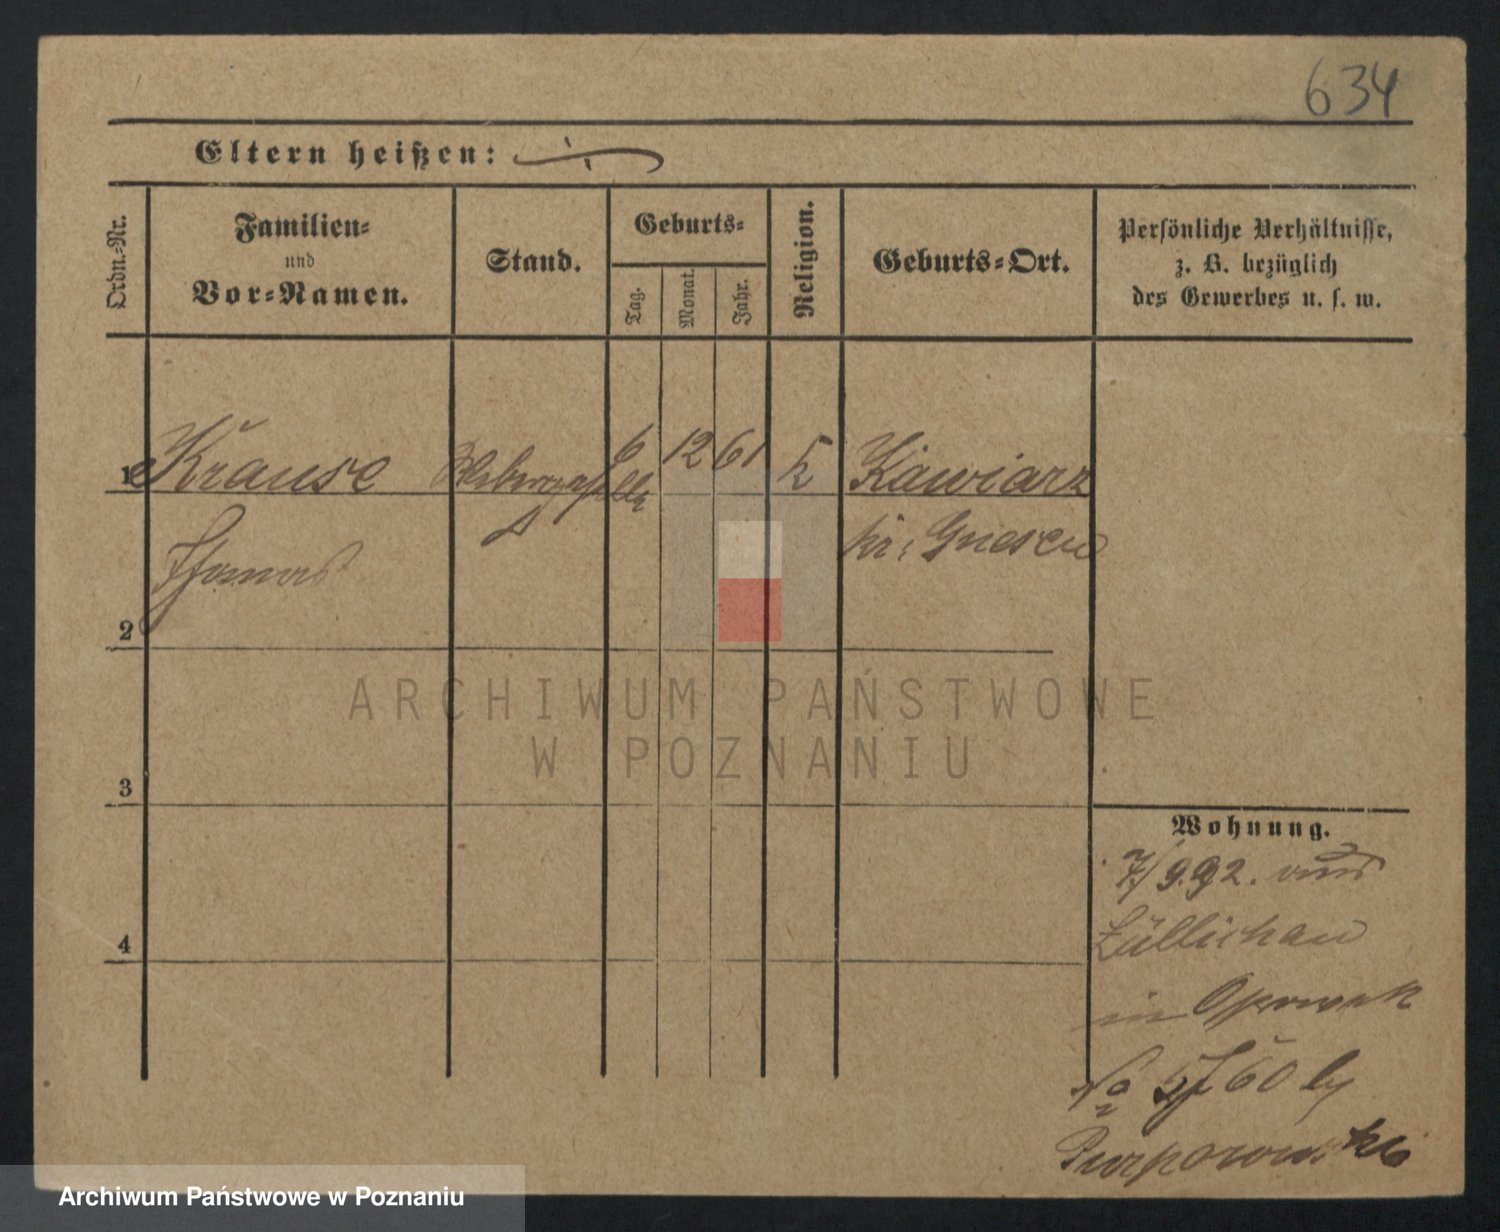 634
Eltern heißen:
Ordn.-Nr.
Familien-
und
Vor-Namen.
Stand.
Geburts-
Tag.
Monat.
Jahr.
Religion.
Geburts-Ort.
Persönliche Verhältnisse,
z. B. bezüglich
des Gewerbes u. s. w.
1 Krause 6 12 61 k Kawiarz
kr: Gnesen
Thomas
2
ARCHIWUM PAŃSTWOWE
W POZNANIU
3
Wohnung.
7/9.92. aus
Züllichau
4
in
No 60
Archiwum Państwowe w Poznaniu